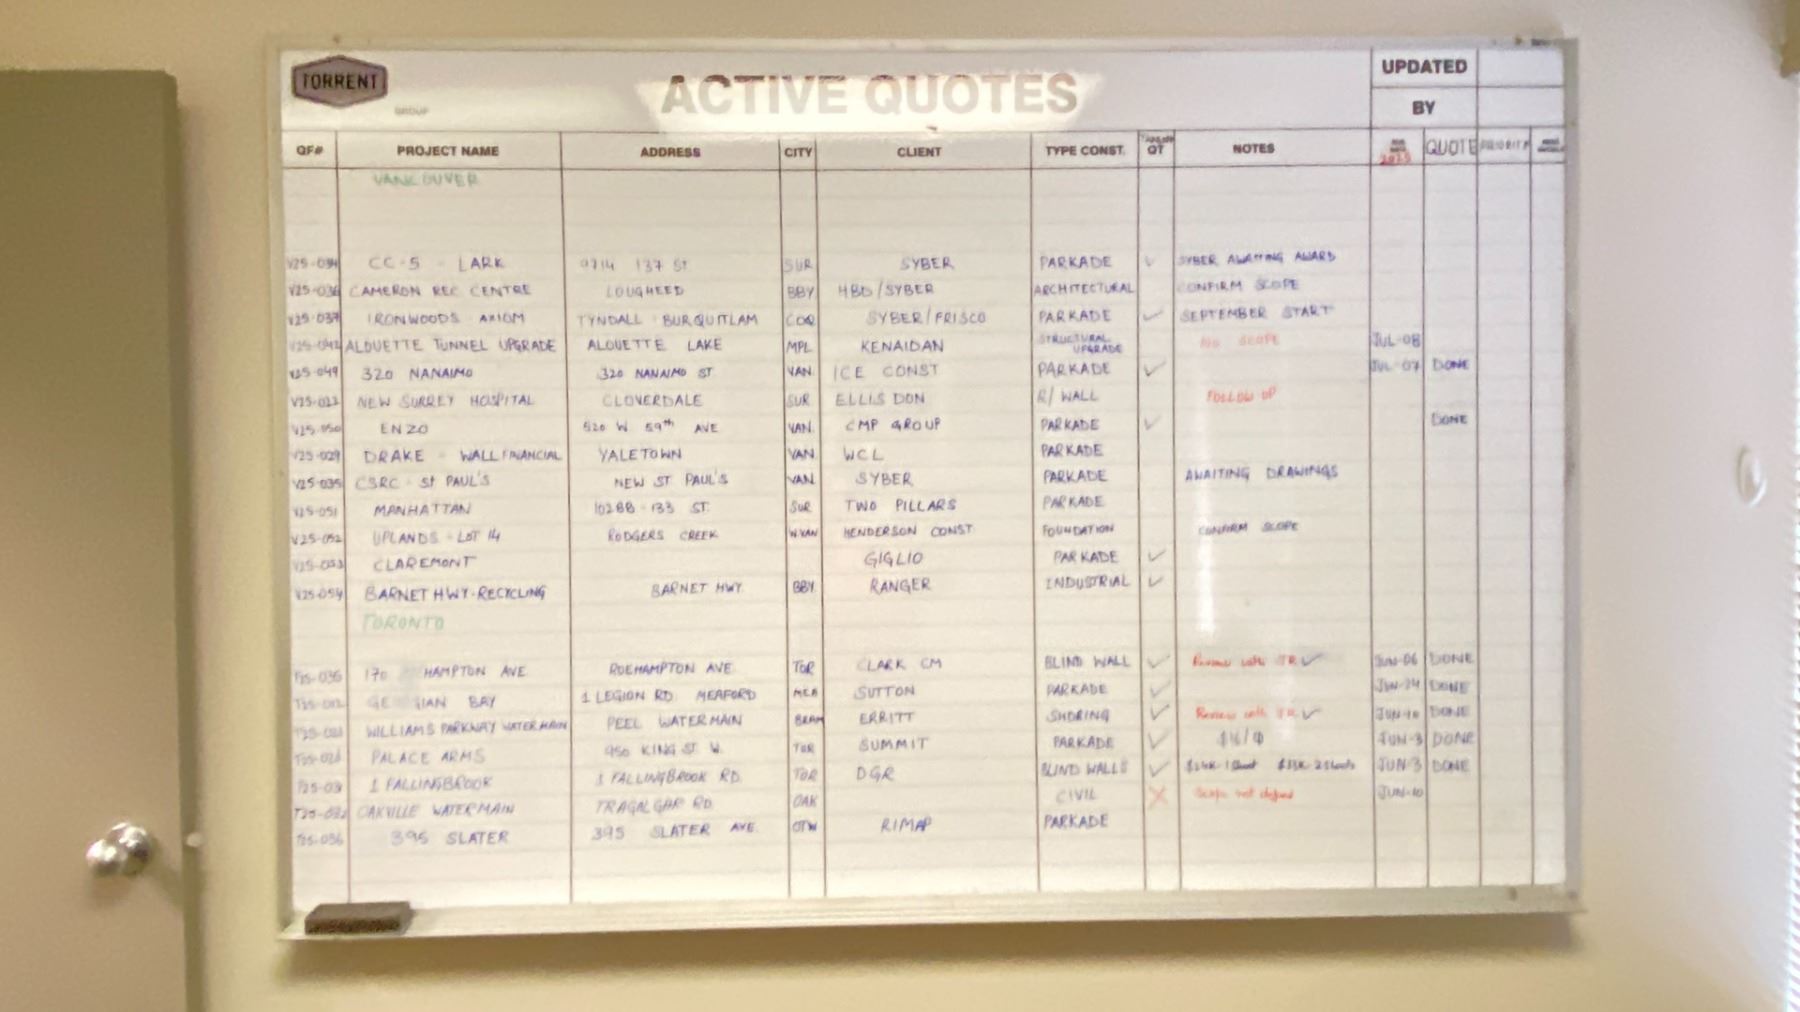 TORRENT
GROUP
ACTIVE QUOTES
UPDATED
BY
QF# PROJECT NAME ADDRESS CITY CLIENT TYPE CONST. QT NOTES 2025 QUOTE PRIORITY
VANCOUVER
V25-034 CC-5 - LARK 9714 137 ST SUR SYBER PARKADE ✓ SYBER AWAITING AWARD
V25-036 CAMERON REC CENTRE LOUGHEED BBY HBD/SYBER ARCHITECTURAL CONFIRM SCOPE
V25-037 IRONWOODS - AXIOM TYNDALL - BURQUITLAM COQ SYBER/FRISCO PARKADE ✓ SEPTEMBER START
V25-042 ALOUETTE TUNNEL UPGRADE ALOUETTE LAKE MPL KENAIDAN STRUCTURAL UPGRADE NO SCOPE JUL-08
V25-049 320 NANAIMO 320 NANAIMO ST VAN ICE CONST PARKADE ✓ JUL-07 DONE
V25-022 NEW SURREY HOSPITAL CLOVERDALE SUR ELLIS DON R/ WALL FOLLOW UP
V25-050 ENZO 520 W 59th AVE VAN CMP GROUP PARKADE ✓ DONE
V25-029 DRAKE - WALL FINANCIAL YALETOWN VAN WCL PARKADE
V25-035 CSRC - St PAUL'S NEW ST PAUL'S VAN SYBER PARKADE AWAITING DRAWINGS
V25-051 MANHATTAN 10288 - 133 ST. SUR TWO PILLARS PARKADE
V25-052 UPLANDS - LOT 14 RODGERS CREEK W.VAN HENDERSON CONST FOUNDATION CONFIRM SCOPE
V25-053 CLAREMONT GIGLIO PARKADE ✓
V25-054 BARNET HWY-RECYCLING BARNET HWY BBY RANGER INDUSTRIAL ✓
TORONTO
T25-036 170 HAMPTON AVE ROEHAMPTON AVE TOR CLARK CM BLIND WALL ✓ Review with JR ✓ JUN-06 DONE
GE GIAN BAY 1 LEGION RD MEAFORD MEA SUTTON PARKADE ✓ JUN-24 DONE
WILLIAMS PARKWAY WATERMAIN PEEL WATERMAIN BRAM ERRITT SHORING ✓ Review with JR ✓ JUN-10 DONE
PALACE ARMS 950 KING ST W. TOR SUMMIT PARKADE ✓ JUN-3 DONE
1 FALLINGBROOK 1 FALLINGBROOK RD TOR DGR BLIND WALLS ✓ JUN-3 DONE
OAKVILLE WATERMAIN TRAGALGAR RD OAK CIVIL X Scope not defined JUN-10
T25-036 395 SLATER 395 SLATER AVE. OTW RIMAP PARKADE